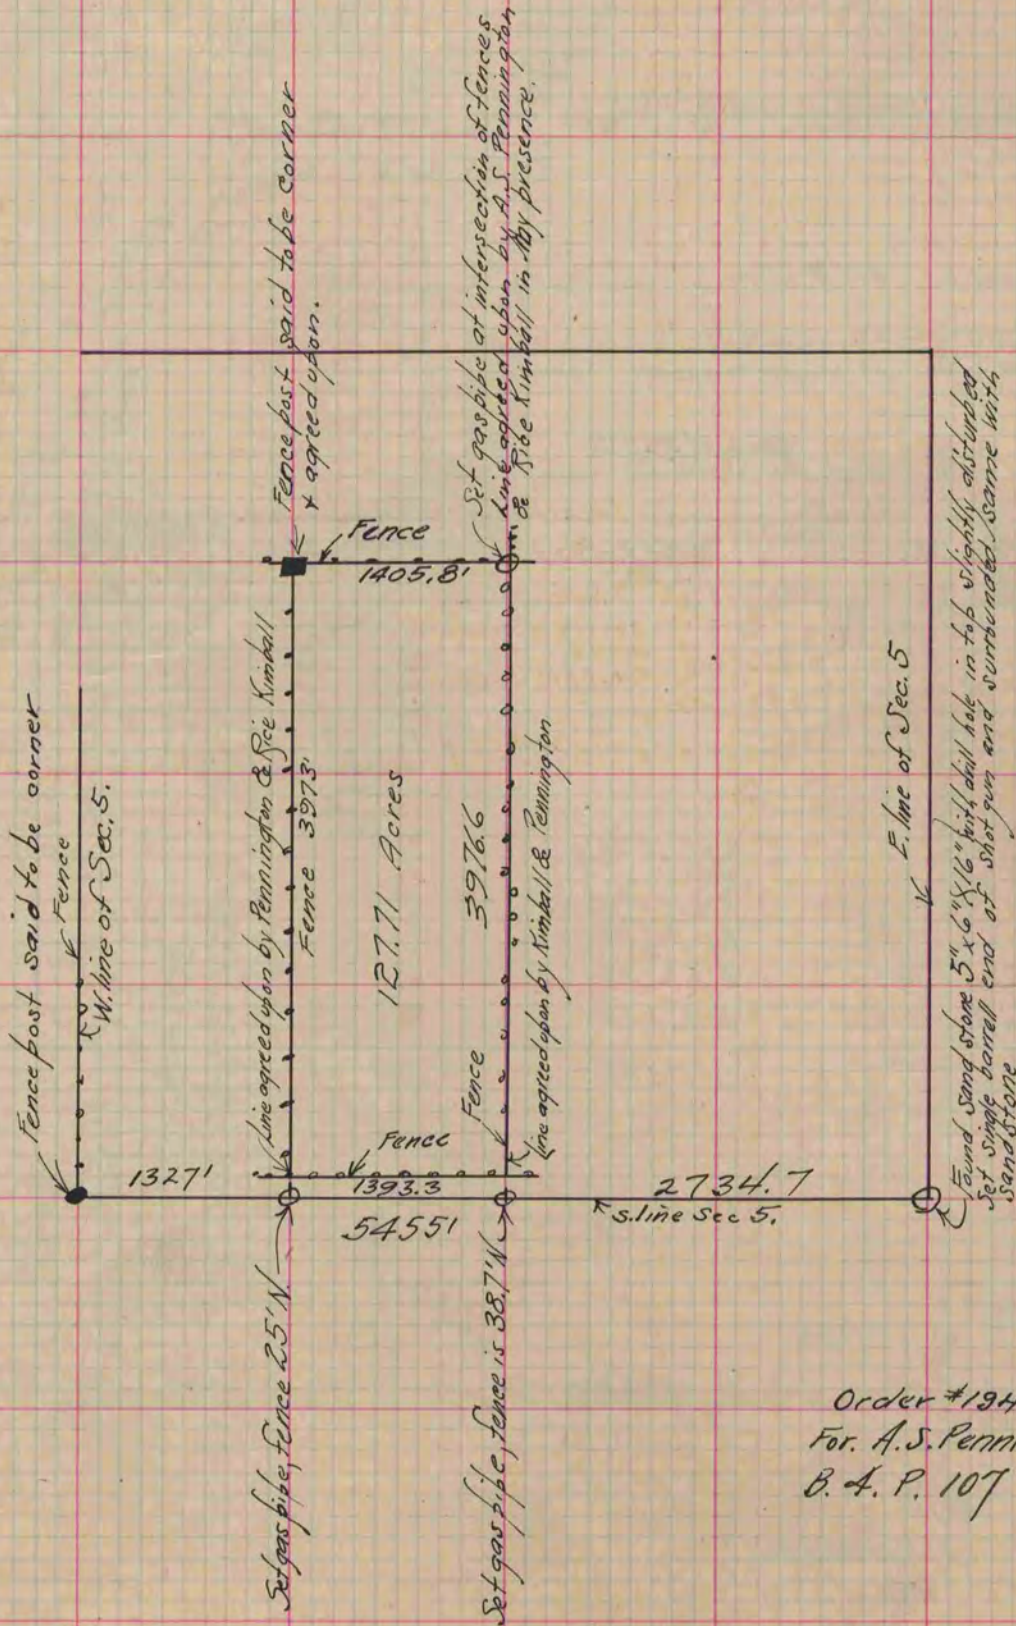 Fence post said to be corner
Fence
W. line of Sec. 5.
Fence post said to be corner
& agreed upon.
Set gas pipe at intersection of fences
Line agreed upon by A.S. Pennington
& Ribe Kimball in my presence.
Fence
1405.8'
Line agreed upon by Pennington & Rice Kimball
Fence 3973'
127.71 Acres
Fence 3976.6
line agreed upon by Kimball & Pennington
E. line of Sec. 5
Found Sand stone 5"x6"x16" with drill hole in top slightly disturbed
Set single barrell end of shot gun and surrounded same with
sandstone
1327'
Fence
1393.3
2734.7
5455'
S. line Sec 5.
Set gas pipe, fence 25' N.
Set gas pipe, fence is 38.7' N.
Order #194
For. A.S. Penn
B. 4. P. 107